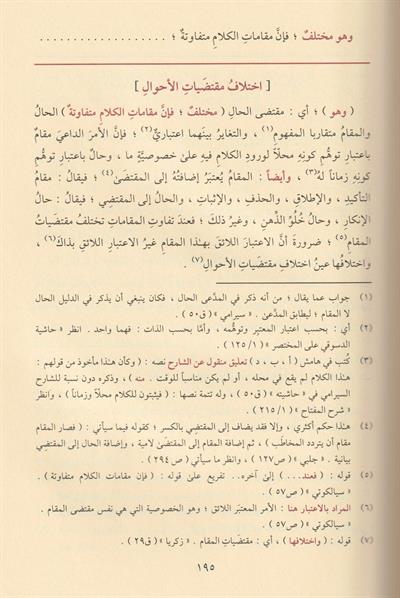 وهو مختلفٌ ؛ فإنَّ مقاماتِ الكلامِ متفاوتةٌ ؛ . . . . . . . . . . . . . . . . . . .
[ اختلافُ مقتضَياتِ الأحوالِ ]
( وهو ) ؛ أي : مقتضى الحالِ ( مختلفٌ ؛ فإنَّ مقاماتِ الكلامِ متفاوتةٌ ) الحالُ
والمقامُ متقاربا المفهومِ(١) ، والتغايرُ بينَهما اعتباريٌّ(٢) ؛ فإنَّ الأمرَ الداعيَ مقامٌ
باعتبارِ توهُّمِ كونِهِ محلّاً لورودِ الكلامِ فيهِ علىٰ خصوصيَّةٍ ما ، وحالٌ باعتبارِ توهُّمِ
كونِهِ زماناً لهُ(٣) ، وأيضاً : المقامُ يُعتبرُ إضافتُهُ إلى المقتضَىٰ(٤) ؛ فيقالُ : مقامُ
التأكيدِ ، والإطلاقِ ، والحذفِ ، والإثباتِ ، والحالُ إلى المقتضِي ؛ فيقالُ : حالُ
الإنكارِ ، وحالُ خُلُوِّ الذِّهنِ ، وغيرُ ذلكَ ؛ فعندَ تفاوتِ المقاماتِ تختلفُ مقتضَياتُ
المقامِ(٥) ؛ ضرورةَ أنَّ الاعتبارَ اللائقَ بهـٰذا المقامِ غيرُ الاعتبارِ اللائقِ بذاكَ(٦) ،
واختلافُها عينُ اختلافِ مقتضَياتِ الأحوالِ(٧) .
(١) جواب عما يقال ؛ من أنه ذكر في المدَّعى الحال ، فكان ينبغي أن يذكر في الدليل الحال
لا المقام ؛ ليطابق المدَّعىٰ . « سيرامي » ( ق٥٠ ) .
(٢) أي : بحسب اعتبار المعتبر وتوهُّمه ، وأمَّا بحسب الذات : فهما واحد . انظر « حاشية
الدسوقي على المختصر » ( ١/ ١٢٥ ) .
(٣) كُتب في هامش ( أ ، ب ، د ) تعليق منقول عن الشارح نصه : ( وكأن هـٰذا مأخوذ من قولهم :
هـٰذا الكلام لم يقع في محله ، أو لم يكن مناسباً للوقت . منه ) ، وذكره دون نسبة للشارح
السيرامي في « حاشيته » ( ق٥٠ ) ، وله تتمة نصها : ( فيثبتون للكلام محلاً وزماناً ) ، وانظر
« شرح المفتاح » ( ١/ ٢١٥ ) .
(٤) هـٰذا حكم أكثري ، وإلا فقد يضاف إلى المقتضِي بالكسر ؛ كقوله فيما سيأتي : ( فصار المقام
مقام أن يتردد المخاطَب ) ، ثم إضافة المقام إلى المقتضَىٰ لامية ، وإضافة الحال إلى المقتضِي
بيانية . « جلبي » ( ص١٢٧ ) ، وانظر ما سيأتي ( ص٢٩٤ ) .
(٥) قوله : ( فعند . . . ) إلىٰ آخره . . تفريع علىٰ قوله : ( فإن مقامات الكلام متفاوتة ) .
« سيالكوتي » ( ص٥٧ ) .
(٦) المراد بالاعتبار هنا : الأمر المعتبَر اللائق ؛ وهو الخصوصية التي هي نفس مقتضى المقام .
« سيالكوتي » ( ص٥٧ ) .
(٧) قوله : ( واختلافها ) ، أي : مقتضَيات المقام . « زكريا » ( ق٢٩ ) .
١٩٥